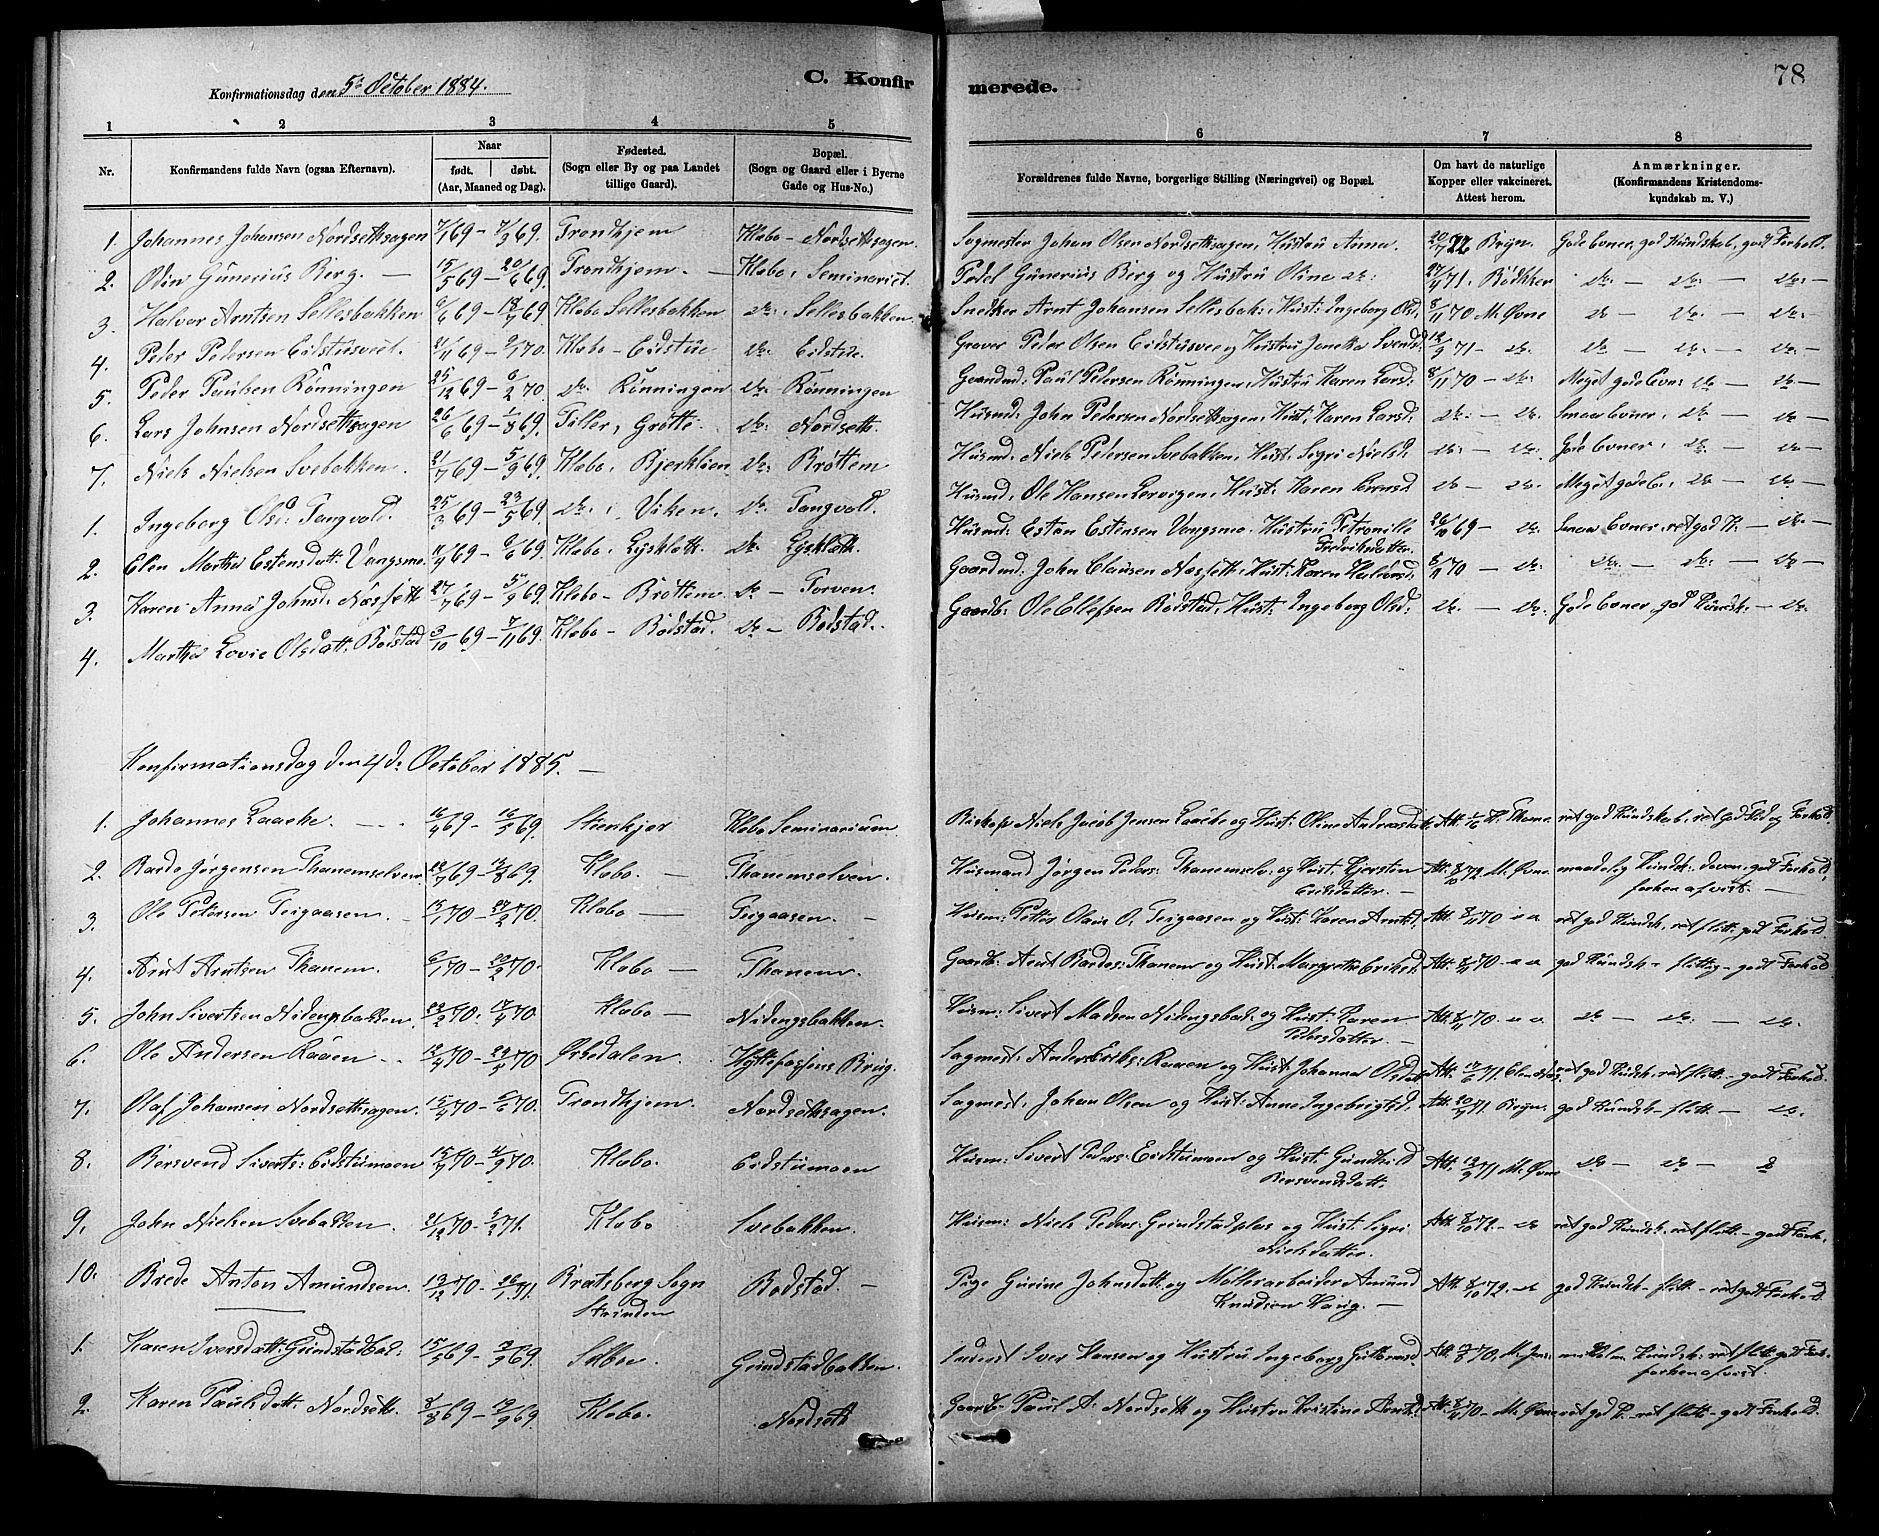 Konfirmationsdag den 5te October 1884.
C. Konfir
merede.
78
1 2 3 4 5 6 7 8
Nr.
Konfirmandens fulde Navn (ogsaa Efternavn).
Naar
født. døbt.
(Aar, Maaned og Dag).
Fødested.
(Sogn eller By og paa Landet
tillige Gaard).
Bopæl.
(Sogn og Gaard eller i Byerne
Gade og Hus-No.)
Forældrenes fulde Navne, borgerlige Stilling (Næringsvei) og Bopæl.
Om havt de naturlige
Kopper eller vakcineret.
Attest herom.
Anmærkninger.
(Konfirmandens Kristendoms-
kundskab m. V.)
1. Johannes Johansen Nordsethsagen 7/1 69 – 7/3 69. Trondhjem Klæbo – Nordsethsagen. Sagmester Johan Olsen Nordsethsagen, Hustru Anna Bryn. Gode Evner, god Kundskab, god Forhold.
2. Odin Gunerius Berg. — 15/5 69 – 20/6 69. Trondhjem. — Klæbo, Seminariet. Pedel Gunerius Berg og Hustru Oline do: 27/4 71. Bødtker do: — do — do —
3. Halvor Arntsen Sellesbakken 6/6 69 – 18/7 69. Klæbo Sellesbakken do: Sellesbakken. Snedker Arnt Johansen Sellesbak: Hust: Ingeborg Olsd. 8/11 70 M. Øvne do — do — do:
4. Peder Pedersen Eidstuveit. 21/11 69 – 9/1 70. Klæbo – Eidstue do: Eidstue. Graver Peder Olsen Eidstuvei og Hustru Jonetta Svends: 12/9 71 – do: do — do: — do:
5. Peder Paulsen Rönningen 25/12 69 – 6/2 70. do. Rönningen do: Rönningen Gaardm: Paul Pedersen Rönningen, Hustru Karen Larsd: 8/11 70 – do: Meget gode Evn: do — do —
6. Lars Johnsen Nordsethsagen 26/6 69 – 1/8 69. Tiller, Grötte. do: Nordseth. Husmd: John Pedersen Nordsethsagen, Hust. Karen Larsd: do: — do: Smaa Evner, do: — do —
7. Niels Nielsen Svebakken. 21/7 69 – 5/9 69. Klæbo, Bjerklien do: Bröttem Husmd: Niels Pedersen Svebakken, Hust: Sigri Nielsd: do: — do: Gode Evner, do: — do —
1. Ingeborg Olsd: Tangvold. 25/3 69 – 23/5 69. do: , Viken. do: Tangvold. Husmd, Ole Hansen Lervigen, Hust: Karen do — do. Meget gode E., do — do —
2. Elen Martha Estensdatt. Vangsmo. 11/4 69 – 6/6 69. Klæbo, Lysklæth. do: Lysklæth. Husmd: Estan Estensen Vangsmo. Hustru Petronille 26/10 69 – do: Smaa Evner, ret god K. — do —
Fredriksdatter.
3. Karen Anna Johnsd: Næsseth 27/7 69 – 5/9 69. Klæbo – Bröttem do – Torven. Gaardmd. John Clausen Næsseth. Hust: Karen 8/11 70 – do: do. — do. — do —
4. Martha Lovise Olsdatt. Bodstad 3/10 69 – 7/11 69. Klæbo – Bodstad. do – Bodstad. Gaardb: Ole Ellefsen Bodstad, Hust. Ingeborg Olsd: do. — do: Gode Evner, god Kundsk. — do.
Konfirmationsdag den 4de October 1885. —
1. Johannes Laache. — 16/4 69 – 16/5 69. Stenkjær Klæbo Seminarium Biskop Niels Jacob Jensen Laache og Hust: Oline Andreasdatt. Att. 1/6 H. Thane. ret god Kundskab, ret god Flid og Forhold.
2. Bardo Jørgensen Thanemselven 22/7 69 – 15/8 69. Klæbo. — Thanemselven. Husmand Jörgen Peders: Thanemselv: og Hust. Kjersten Att: 8/10 72 M. Øvne. maadelig Kundsk: doven, godt Forhold,
Eriksdatter. — forhen afvist. —
3. Ole Petersen Teigaasen. 13/1 70 – 27/2 70. Klæbo — Teigaasen. — Husm: Petter Olaus O. Teigaasen og Hust: Karen Arntsd. Att. 8/11 70 – " " ret god Kundsk, ret flitt. godt Forhold.
4. Arnt Arntsen Thanem. 6/1 70 – 20/2 70. Klæbo — Thanem. Gaardb: Arnt Bardos: Thanem og Hust: Margrethe Eriksd: Att. 8/11 70 – " " god Kundsk – flittig – godt Forhold
5. John Sivertsen Nidengsbakken. 22/2 70. 17/4 70 Klæbo — Nidengsbakken. Husm: Sivert Madsen Nidengsbak: og Hust: Karen Att: 8/11 70. " " do — do: — do.
Pedersdatter. —
6. Ole Andersen Raaen — 12/4 70 – 29/5 70 Orkedalen. Hyttefossens Brug. Sagmest: Anders Eriks: Raaen og Hust. Johanna Olsdatt Att: 12/6 71. ret god Kundsk, ret flitt. – godt Forhold.
7. Olaf Johansen Nordsethsagen. 15/4 70 – 5/6 70. Trondhjem. Nordsethsagen. Sagmest: Johan Olsen og Hust: Anne Ingebrigtsd. Att. 20/7 71 Bryn. god Kundsk – flitt. — do.
8. Bersvend Siverts: Eidstumoen 15/7 70 – 4/9 70. Klæbo. Eidstumoen Husm: Sivert Peders: Eidstumoen og Hust. Gundhild Att. 12/9 71 M. Øvne do — do — do
Bersvendsdatt.
9. John Nielsen Svebakken. 21/12 70 – 5/2 71. Klæbo Svebakken. Husm: Niels Peders: Grindstadplas og Hust: Sigri Att. 8/10 72. – do ret god Kundsk, ret flitt. – godt Forh.
Nielsdatter.
10. Brede Anton Amundsen. 13/12 70 – 26/1 71. Bratsberg Sogn Bodstad. — Pige Gurine Johnsdatt. og Möllerarbeider Amund Att. 8/10 72. – do god Kundsk – flitt. – ret godt Forhold.
Strinden Knudsen Haug. —
1. Karen Iversdatt: Grindstadbak. 15/5 69 – 12/9 69. Selbo. Grindstadbakken. Inderst Iver Hansen og Hustru Ingeborg Guttormsd Att. 70. M. Jens: Kundsk – ret flitt. godt Forh.
forhen afvist.
2. Karen Paulsdatt. Nordseth. 8/8 69 – 19/9 69. Klæbo. Nordseth Gaardb. Paul A. Nordseth og Hustru Kristine Arntsd. Att. 8/11 70 – M. Øvne ret god K. – ret flitt. – godt Forhold.